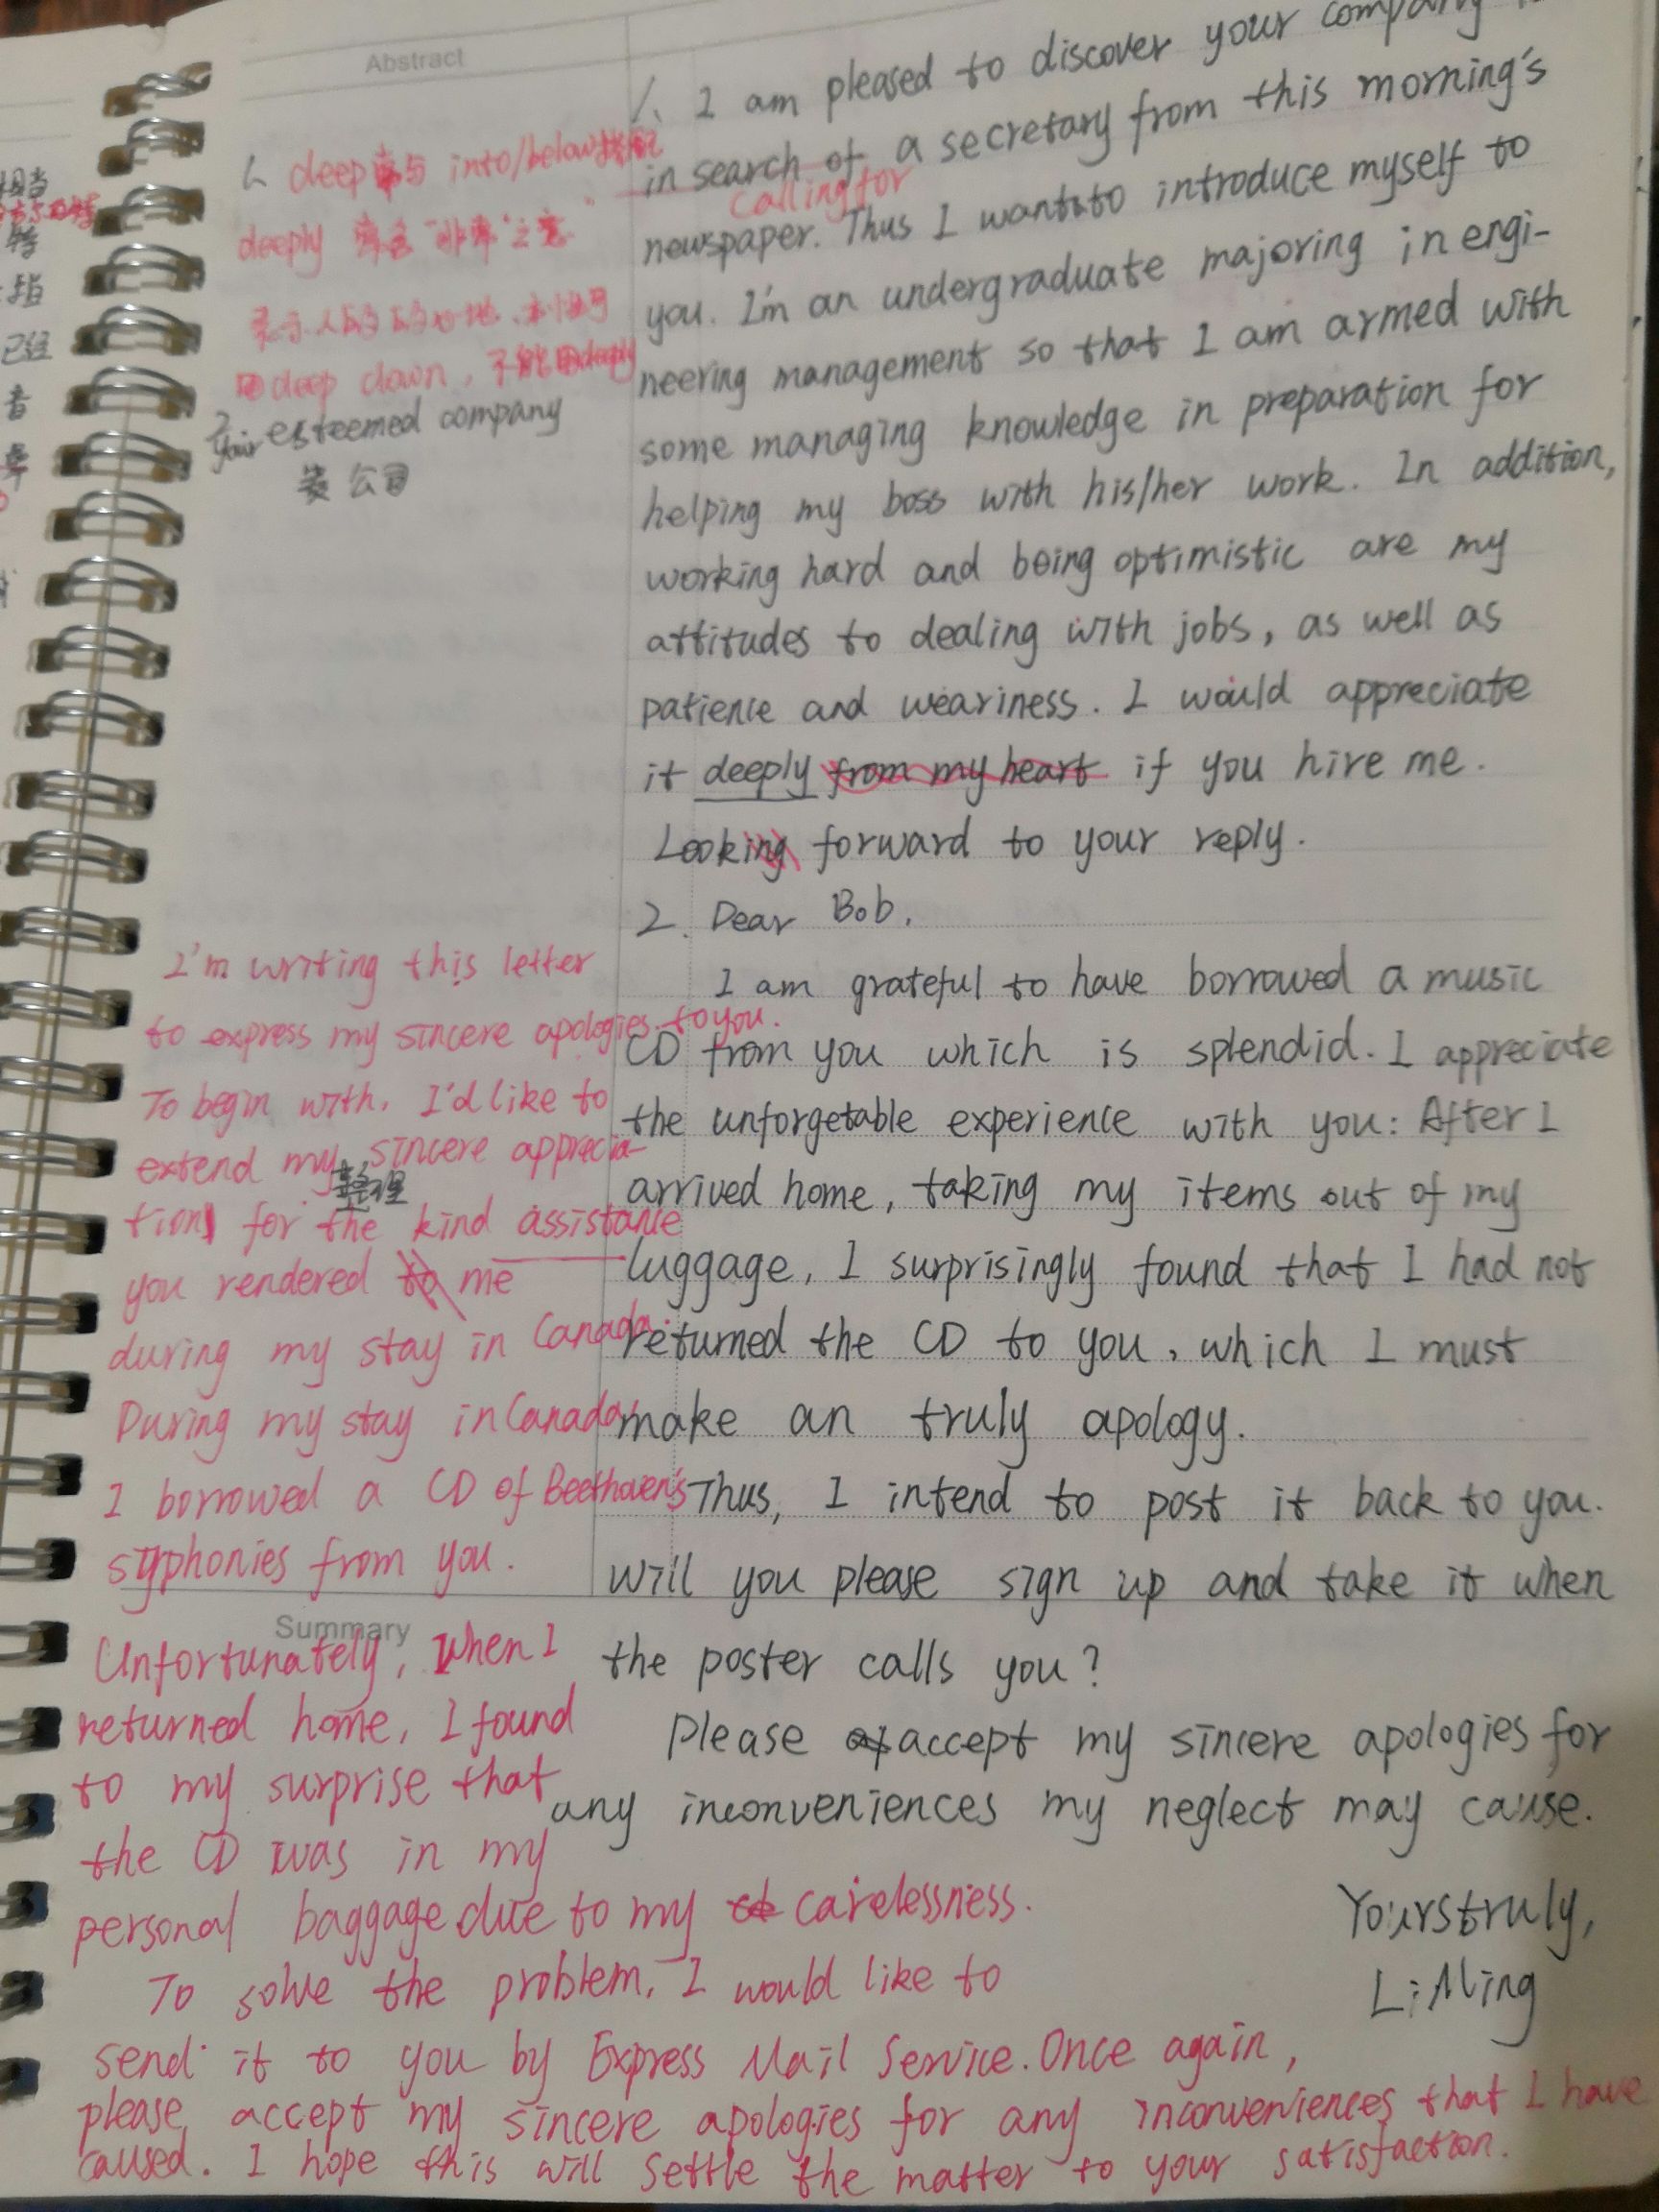 Abstract
1. deep 常与 into/below搭配
deeply 含 "非常"之意
deep down, 不能用deeply
2. your esteemed company
贵公司
1. I am pleased to discover your company
in search of a secretary from this morning's
calling for
newspaper. Thus I want to introduce myself to
you. I'm an undergraduate majoring in engi-
neering management so that I am armed with
some managing knowledge in preparation for
helping my boss with his/her work. In addition,
working hard and being optimistic are my
attitudes to dealing with jobs, as well as
patience and weariness. I would appreciate
it deeply from my heart if you hire me.
Looking forward to your reply.
2. Dear Bob,
I am grateful to have borrowed a music
CD from you which is splendid. I appreciate
the unforgetable experience with you: After I
arrived home, taking my items out of my
luggage, I surprisingly found that I had not
returned the CD to you, which I must
make an truly apology.
Thus, I intend to post it back to you.
Will you please sign up and take it when
the poster calls you?
Please accept my sincere apologies for
any inconveniences my neglect may cause.
Yours truly,
Li Ming
I'm writing this letter
to express my sincere apologies to you.
To begin with, I'd like to
extend my sincere apprecia-
整理
tion for the kind assistance
you rendered to me
during my stay in Canada.
During my stay in Canada,
I borrowed a CD of Beethoven's
syphonies from you.
Summary
Unfortunately, when I
returned home, I found
to my surprise that
the CD was in my
personal baggage due to my carelessness.
To solve the problem, I would like to
send it to you by Express Mail Service. Once again,
please accept my sincere apologies for any inconveniences that I have
caused. I hope this will settle the matter to your satisfaction.